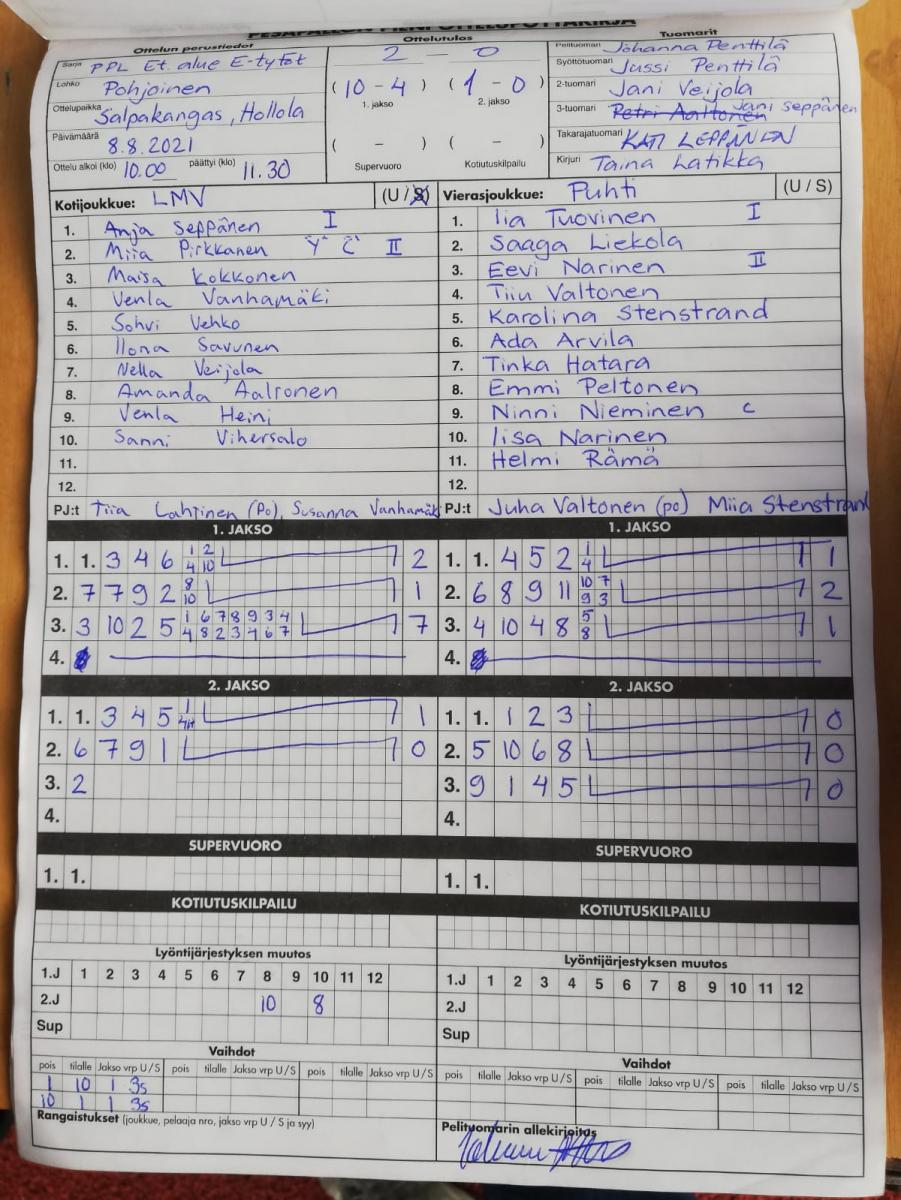 PESÄPALLON PIENI OTTELUPÖYTÄKIRJA
Ottelun perustiedot
Sarja PPL Et. alue E-tytöt
Lohko Pohjoinen
Ottelupaikka Salpakangas, Hollola
Päivämäärä 8.8.2021
Ottelu alkoi (klo) 10.00 päättyi (klo) 11.30
Ottelutulos
2 – 0
(10 - 4) (1 - 0)
1. jakso 2. jakso
( – ) ( – )
Supervuoro Kotiutuskilpailu
Tuomarit
Pelituomari Johanna Penttilä
Syöttötuomari Jussi Penttilä
2-tuomari Jani Veijola
3-tuomari Petri Aaltonen Jani Seppänen
Takarajatuomari KATI LEPPÄNEN
Kirjuri Taina Latikka
Kotijoukkue: LMV (U / S)
1. Anja Seppänen I
2. Miia Pirkkanen "Y" C II
3. Maisa Kokkonen
4. Venla Vanhamäki
5. Sohvi Vehko
6. Ilona Savunen
7. Nella Veijola
8. Amanda Aaltonen
9. Venla Heini
10. Sanni Vihersalo
11.
12.
PJ:t Tiia Lahtinen (Po), Susanna Vanhamäki
Vierasjoukkue: Puhti (U / S)
1. Iia Tuovinen I
2. Saaga Liekola
3. Eevi Narinen II
4. Tiiu Valtonen
5. Karolina Stenstrand
6. Ada Arvila
7. Tinka Hatara
8. Emmi Peltonen
9. Ninni Nieminen C
10. Iisa Narinen
11. Helmi Rämä
12.
PJ:t Juha Valtonen (po) Miia Stenstrand
1. JAKSO
1. 1. 3 4 6 1/4 2/10 2
2. 7 7 9 2 8/10 1
3. 3 10 2 5 1/4 6/8 7/2 8/3 9/4 3/6 4/7 7
4.
2. JAKSO
1. 1. 3 4 5 1
2. 6 7 9 1 0
3. 2
4.
SUPERVUORO
1. 1.
KOTIUTUSKILPAILU
Lyöntijärjestyksen muutos
1.J 1 2 3 4 5 6 7 8 9 10 11 12
2.J 10 8
Sup
Vaihdot
pois tilalle Jakso vrp U / S pois tilalle Jakso vrp U / S pois tilalle Jakso vrp U / S
1 10 1 3s
10 1 1 3s
Rangaistukset (joukkue, pelaaja nro, jakso vrp U / S ja syy)
1. JAKSO
1. 1. 4 5 2 1/4 1
2. 6 8 9 11 10/9 7/3 2
3. 4 10 4 8 5/8 1
4.
2. JAKSO
1. 1. 1 2 3 0
2. 5 10 6 8 0
3. 9 1 4 5 0
4.
SUPERVUORO
1. 1.
KOTIUTUSKILPAILU
Lyöntijärjestyksen muutos
1.J 1 2 3 4 5 6 7 8 9 10 11 12
2.J
Sup
Vaihdot
pois tilalle Jakso vrp U / S pois tilalle Jakso vrp U / S pois tilalle Jakso vrp U / S
Pelituomarin allekirjoitus